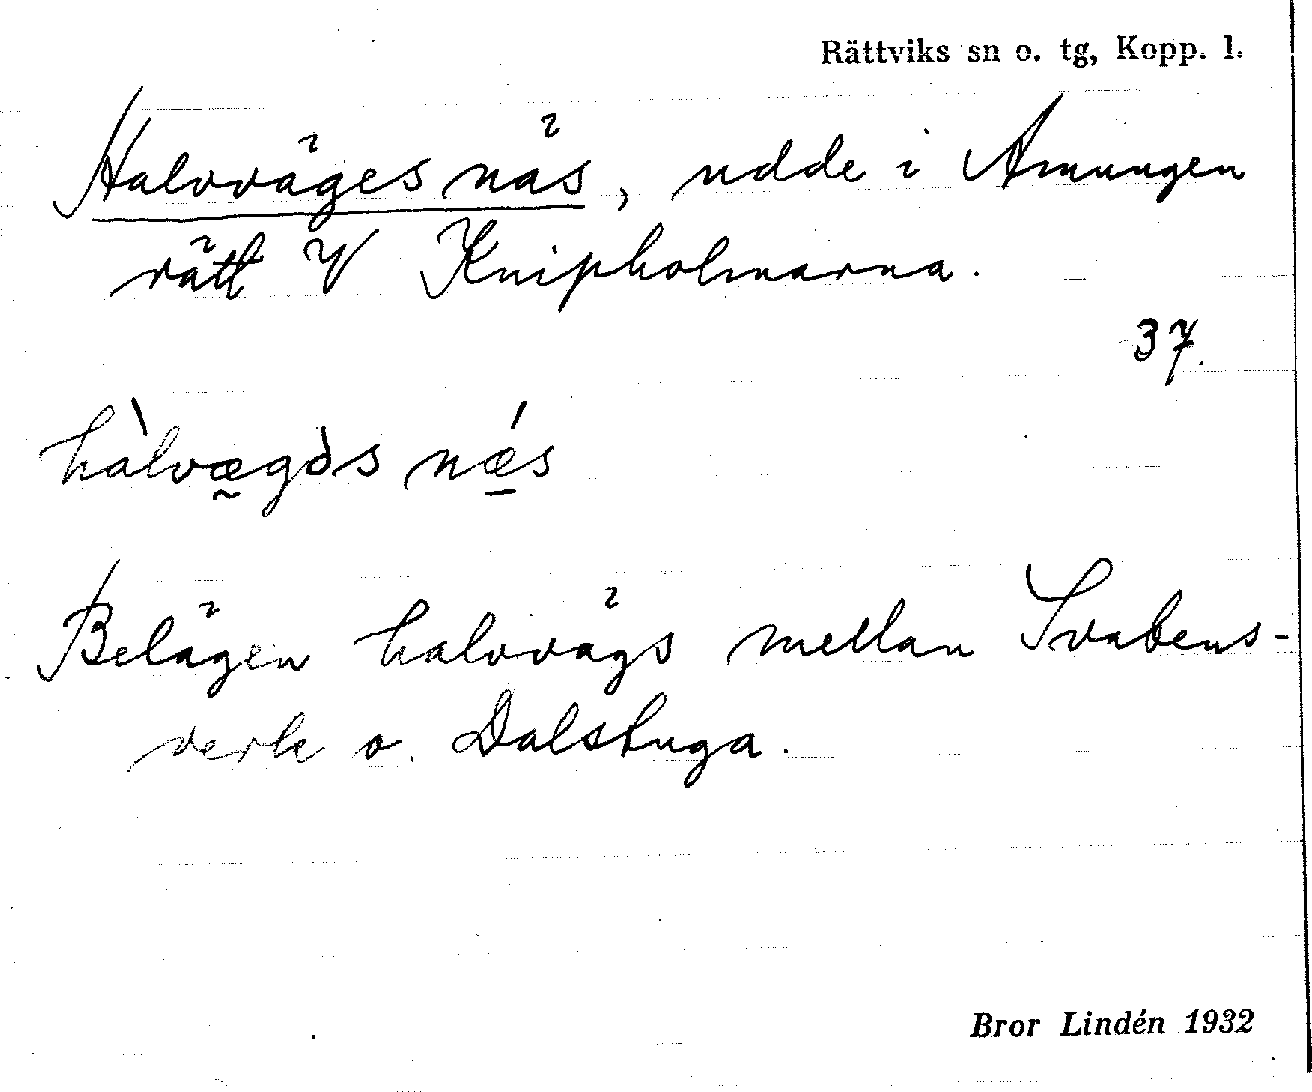 Rättviks sn o. tg, Kopp. l.
Halvvägesnäs, udde i Amungen
rätt V Knipholmarna.
37.
hàlvæ̰gòs nǽ̠s
Belägen halvvägs mellan Svabens-
verk o. Dalstuga.
Bror Lindén 1932